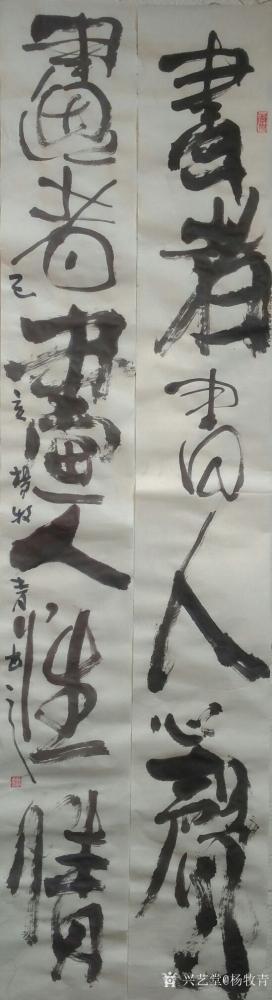 書者書人心聲
畫者畫人性情
己亥楊牧青書之
兴艺堂@杨牧青